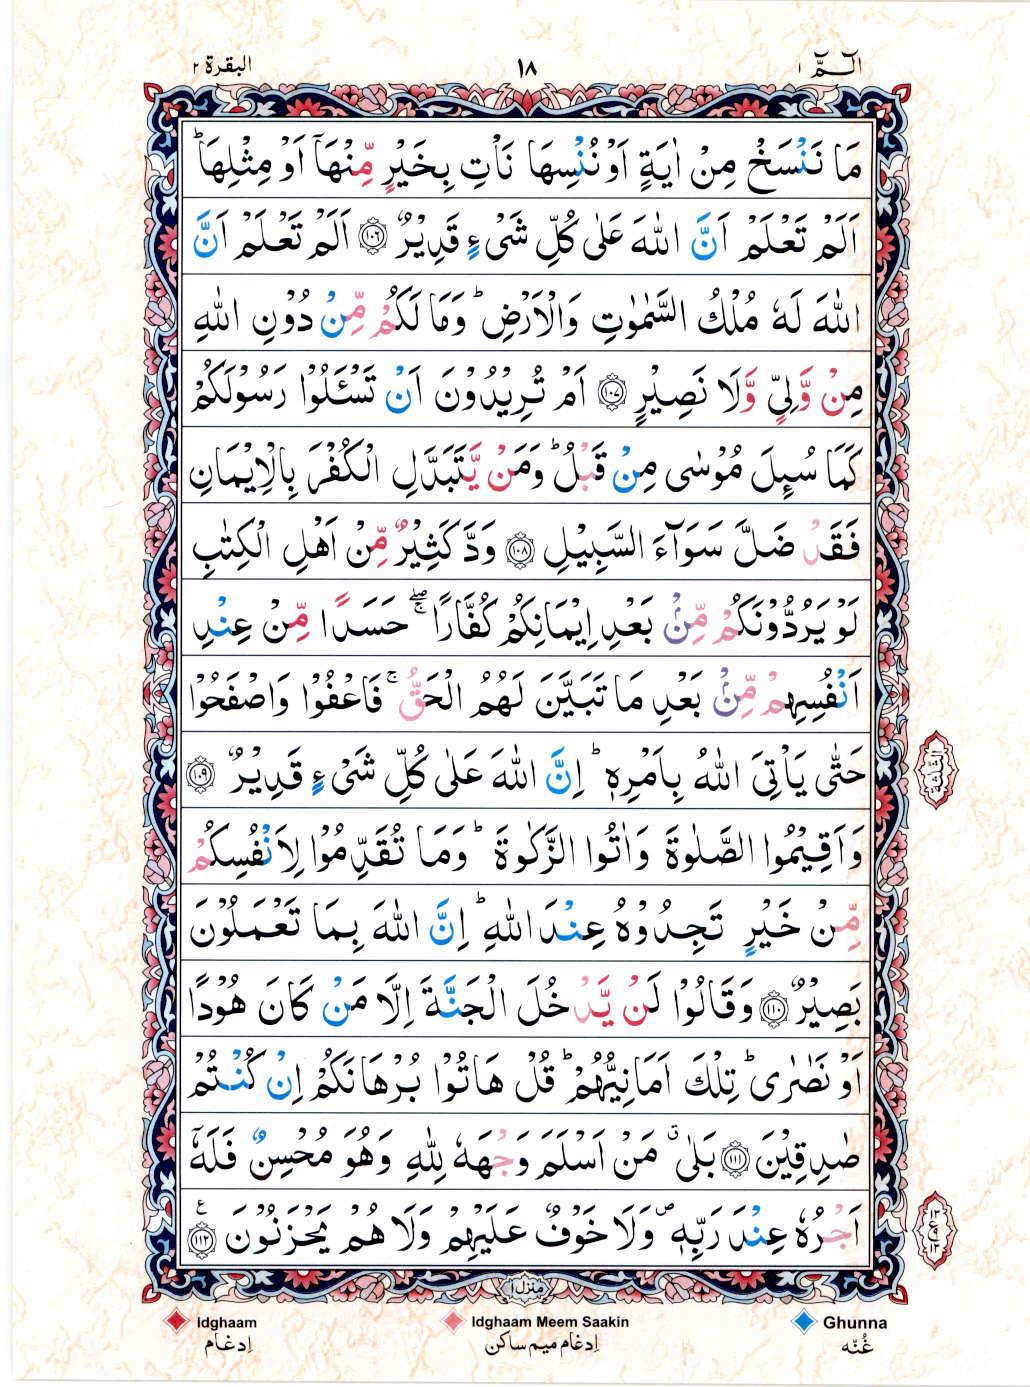 الٓـمّٓ ۱
۱۸
البقرة ۲
مَا نَنْسَخْ مِنْ اٰيَةٍ اَوْ نُنْسِهَا نَاْتِ بِخَيْرٍ مِّنْهَاۤ اَوْ مِثْلِهَا ؕ
اَلَمْ تَعْلَمْ اَنَّ اللّٰهَ عَلٰى كُلِّ شَیْءٍ قَدِيْرٌ ﴿۱۰۶﴾ اَلَمْ تَعْلَمْ اَنَّ
اللّٰهَ لَهٗ مُلْكُ السَّمٰوٰتِ وَالْاَرْضِ ؕ وَمَا لَكُمْ مِّنْ دُوْنِ اللّٰهِ
مِنْ وَّلِیٍّ وَّلَا نَصِيْرٍ ﴿۱۰۷﴾ اَمْ تُرِيْدُوْنَ اَنْ تَسْـَٔلُوْا رَسُوْلَكُمْ
كَمَا سُىِٕلَ مُوْسٰى مِنْ قَبْلُ ؕ وَمَنْ يَّتَبَدَّلِ الْكُفْرَ بِالْاِيْمَانِ
فَقَدْ ضَلَّ سَوَآءَ السَّبِيْلِ ﴿۱۰۸﴾ وَدَّ كَثِيْرٌ مِّنْ اَهْلِ الْكِتٰبِ
لَوْ يَرُدُّوْنَكُمْ مِّنْۢ بَعْدِ اِيْمَانِكُمْ كُفَّارًا ۖۚ حَسَدًا مِّنْ عِنْدِ
اَنْفُسِهِمْ مِّنْۢ بَعْدِ مَا تَبَيَّنَ لَهُمُ الْحَقُّ ۚ فَاعْفُوْا وَاصْفَحُوْا
حَتّٰى يَاْتِیَ اللّٰهُ بِاَمْرِهٖ ؕ اِنَّ اللّٰهَ عَلٰى كُلِّ شَیْءٍ قَدِيْرٌ ﴿۱۰۹﴾
الثلثة
وَاَقِيْمُوا الصَّلٰوةَ وَاٰتُوا الزَّكٰوةَ ؕ وَمَا تُقَدِّمُوْا لِاَنْفُسِكُمْ
مِّنْ خَيْرٍ تَجِدُوْهُ عِنْدَ اللّٰهِ ؕ اِنَّ اللّٰهَ بِمَا تَعْمَلُوْنَ
بَصِيْرٌ ﴿۱۱۰﴾ وَقَالُوْا لَنْ يَّدْخُلَ الْجَنَّةَ اِلَّا مَنْ كَانَ هُوْدًا
اَوْ نَصٰرٰى ؕ تِلْكَ اَمَانِيُّهُمْ ؕ قُلْ هَاتُوْا بُرْهَانَكُمْ اِنْ كُنْتُمْ
صٰدِقِيْنَ ﴿۱۱۱﴾ بَلٰى ۗ مَنْ اَسْلَمَ وَجْهَهٗ لِلّٰهِ وَهُوَ مُحْسِنٌ فَلَهٗۤ
اَجْرُهٗ عِنْدَ رَبِّهٖ ۪ وَلَا خَوْفٌ عَلَيْهِمْ وَلَا هُمْ يَحْزَنُوْنَ ﴿۱۱۲﴾ ع
۱۳ ع ۱۳
منزل ۱
Idghaam Idghaam Meem Saakin Ghunna
اِدغام اِدغام میم ساکن غُنّه